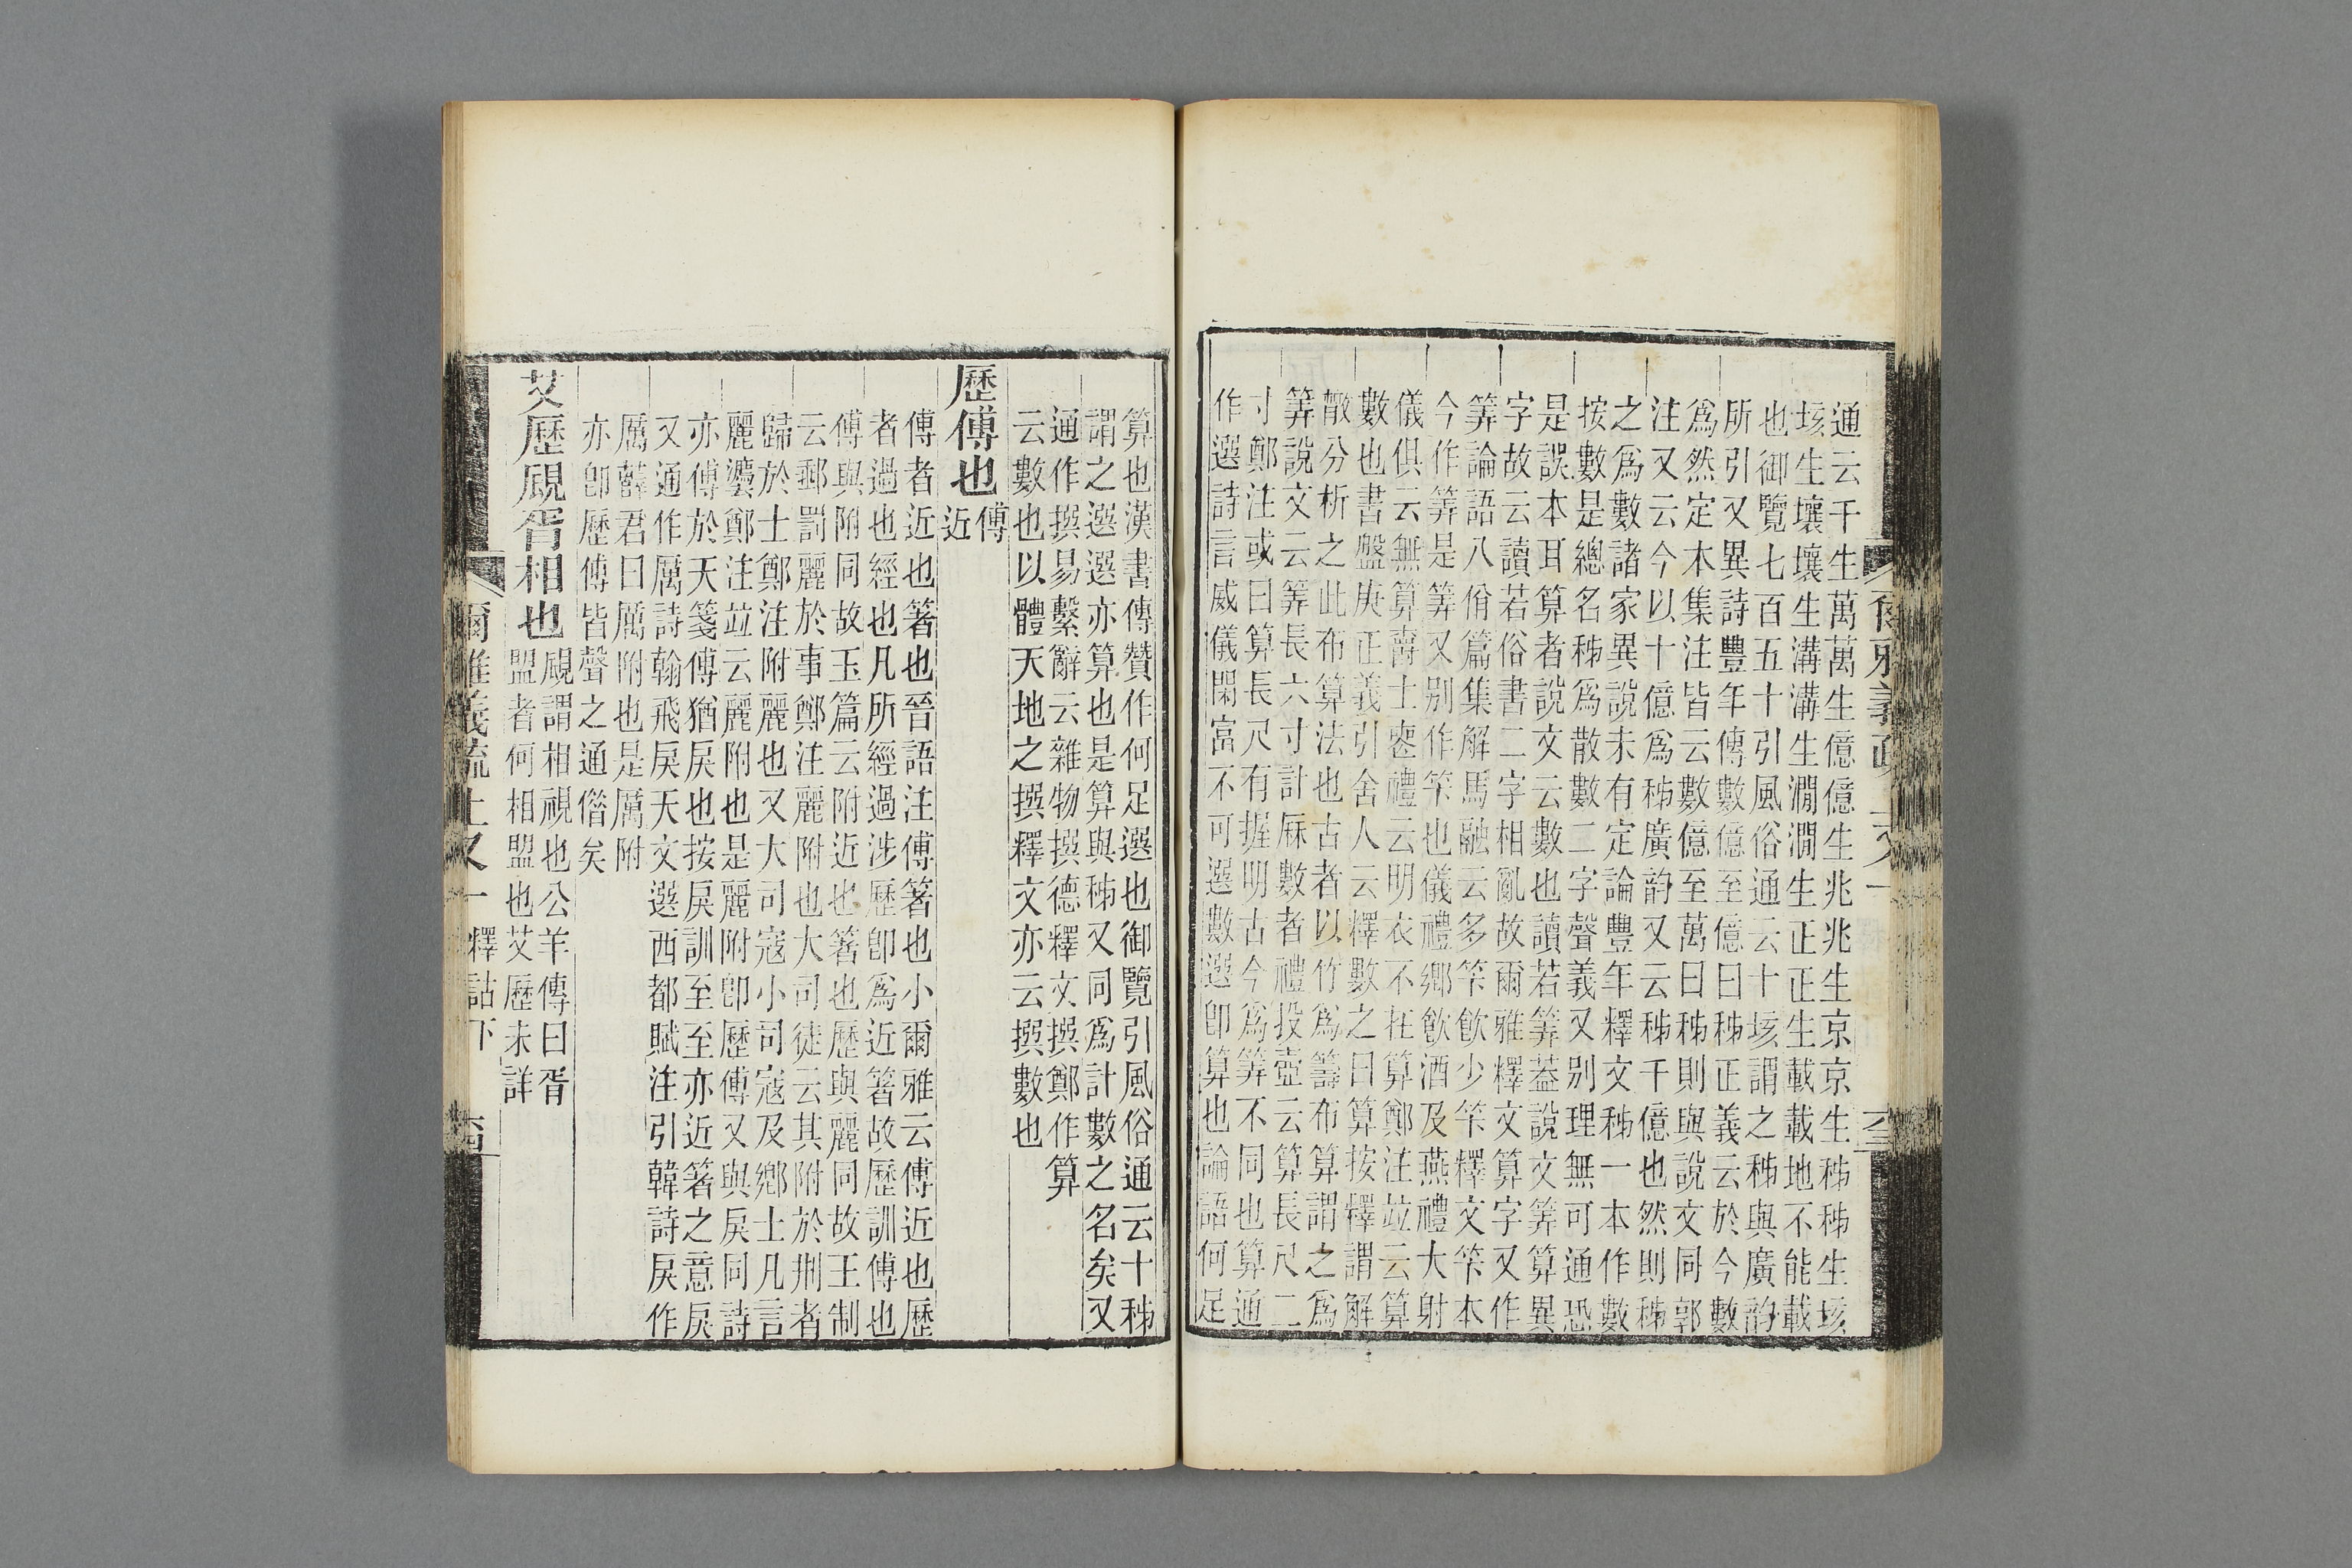 通云千生萬萬生億億生兆兆生京京生秭秭生垓
垓生壤壤生溝溝生澗澗生正正生載載地不能載
也御覽七百五十引風俗通云十垓謂之秭與廣韵
所引又異詩豐年傳數億至億曰秭正義云於今數
爲然定本集注皆云數億至萬曰秭則與說文同郭
注又云今以十億爲秭廣韵又云秭千億也然則秭
之爲數諸家異說未有定論豐年釋文秭一本作數
按數是總名秭爲散數二字聲義又别理無可通恐
是誤本耳算者說文云數也讀若筭葢說文筭算異
字故云讀若俗書二字相亂故爾雅釋文算字又作
筭論語八佾篇集解馬融云多筭飮少筭釋文筭本
今作筭是筭又别作筭也儀禮鄉飮酒及燕禮大射
儀俱云無算爵士䘮禮云明衣不在算鄭注竝云算
數也書盤庚正義引舍人云釋數之曰算按釋謂解
散分析之此布算法也古者以竹爲籌布算謂之爲
筭說文云筭長六寸計厤數者禮投壺云算長尺二
寸鄭注或曰算長尺有握明古今爲筭不同也算通
作選詩言威儀閑富不可選數選卽算也論語何足
算也漢書傳贊作何足選也御覽引風俗通云十秭
謂之選選亦算也是算與秭又同爲計數之名矣又
通作撰易繫辭云雜物撰德釋文撰鄭作算
云數也以體天地之撰釋文亦云撰數也
歷傅也 傅
近
傅者近也著也晉語注傅著也小爾雅云傅近也歷
者過也經也凡所經過涉歷卽爲近著故歷訓傅也
傅與附同故玉篇云附近也著也歷與麗同故王制
云郵罰麗於事鄭注麗附也大司徒云其附於刑者
歸於士鄭注附麗也又大司寇小司寇及鄉士凡言
麗灋鄭注竝云麗附也是麗附卽歷傅又與戾同詩
亦傅於天箋傅猶戾也按戾訓至至亦近著之意戾
又通作厲詩翰飛戾天文選西都賦注引韓詩戾作
厲薛君曰厲附也是厲附
亦卽歷傅皆聲之通偕矣
艾歷覛胥相也 覛謂相視也公羊傳曰胥
盟者何相盟也艾歷未詳
爾雅義疏 上又一 釋詁下